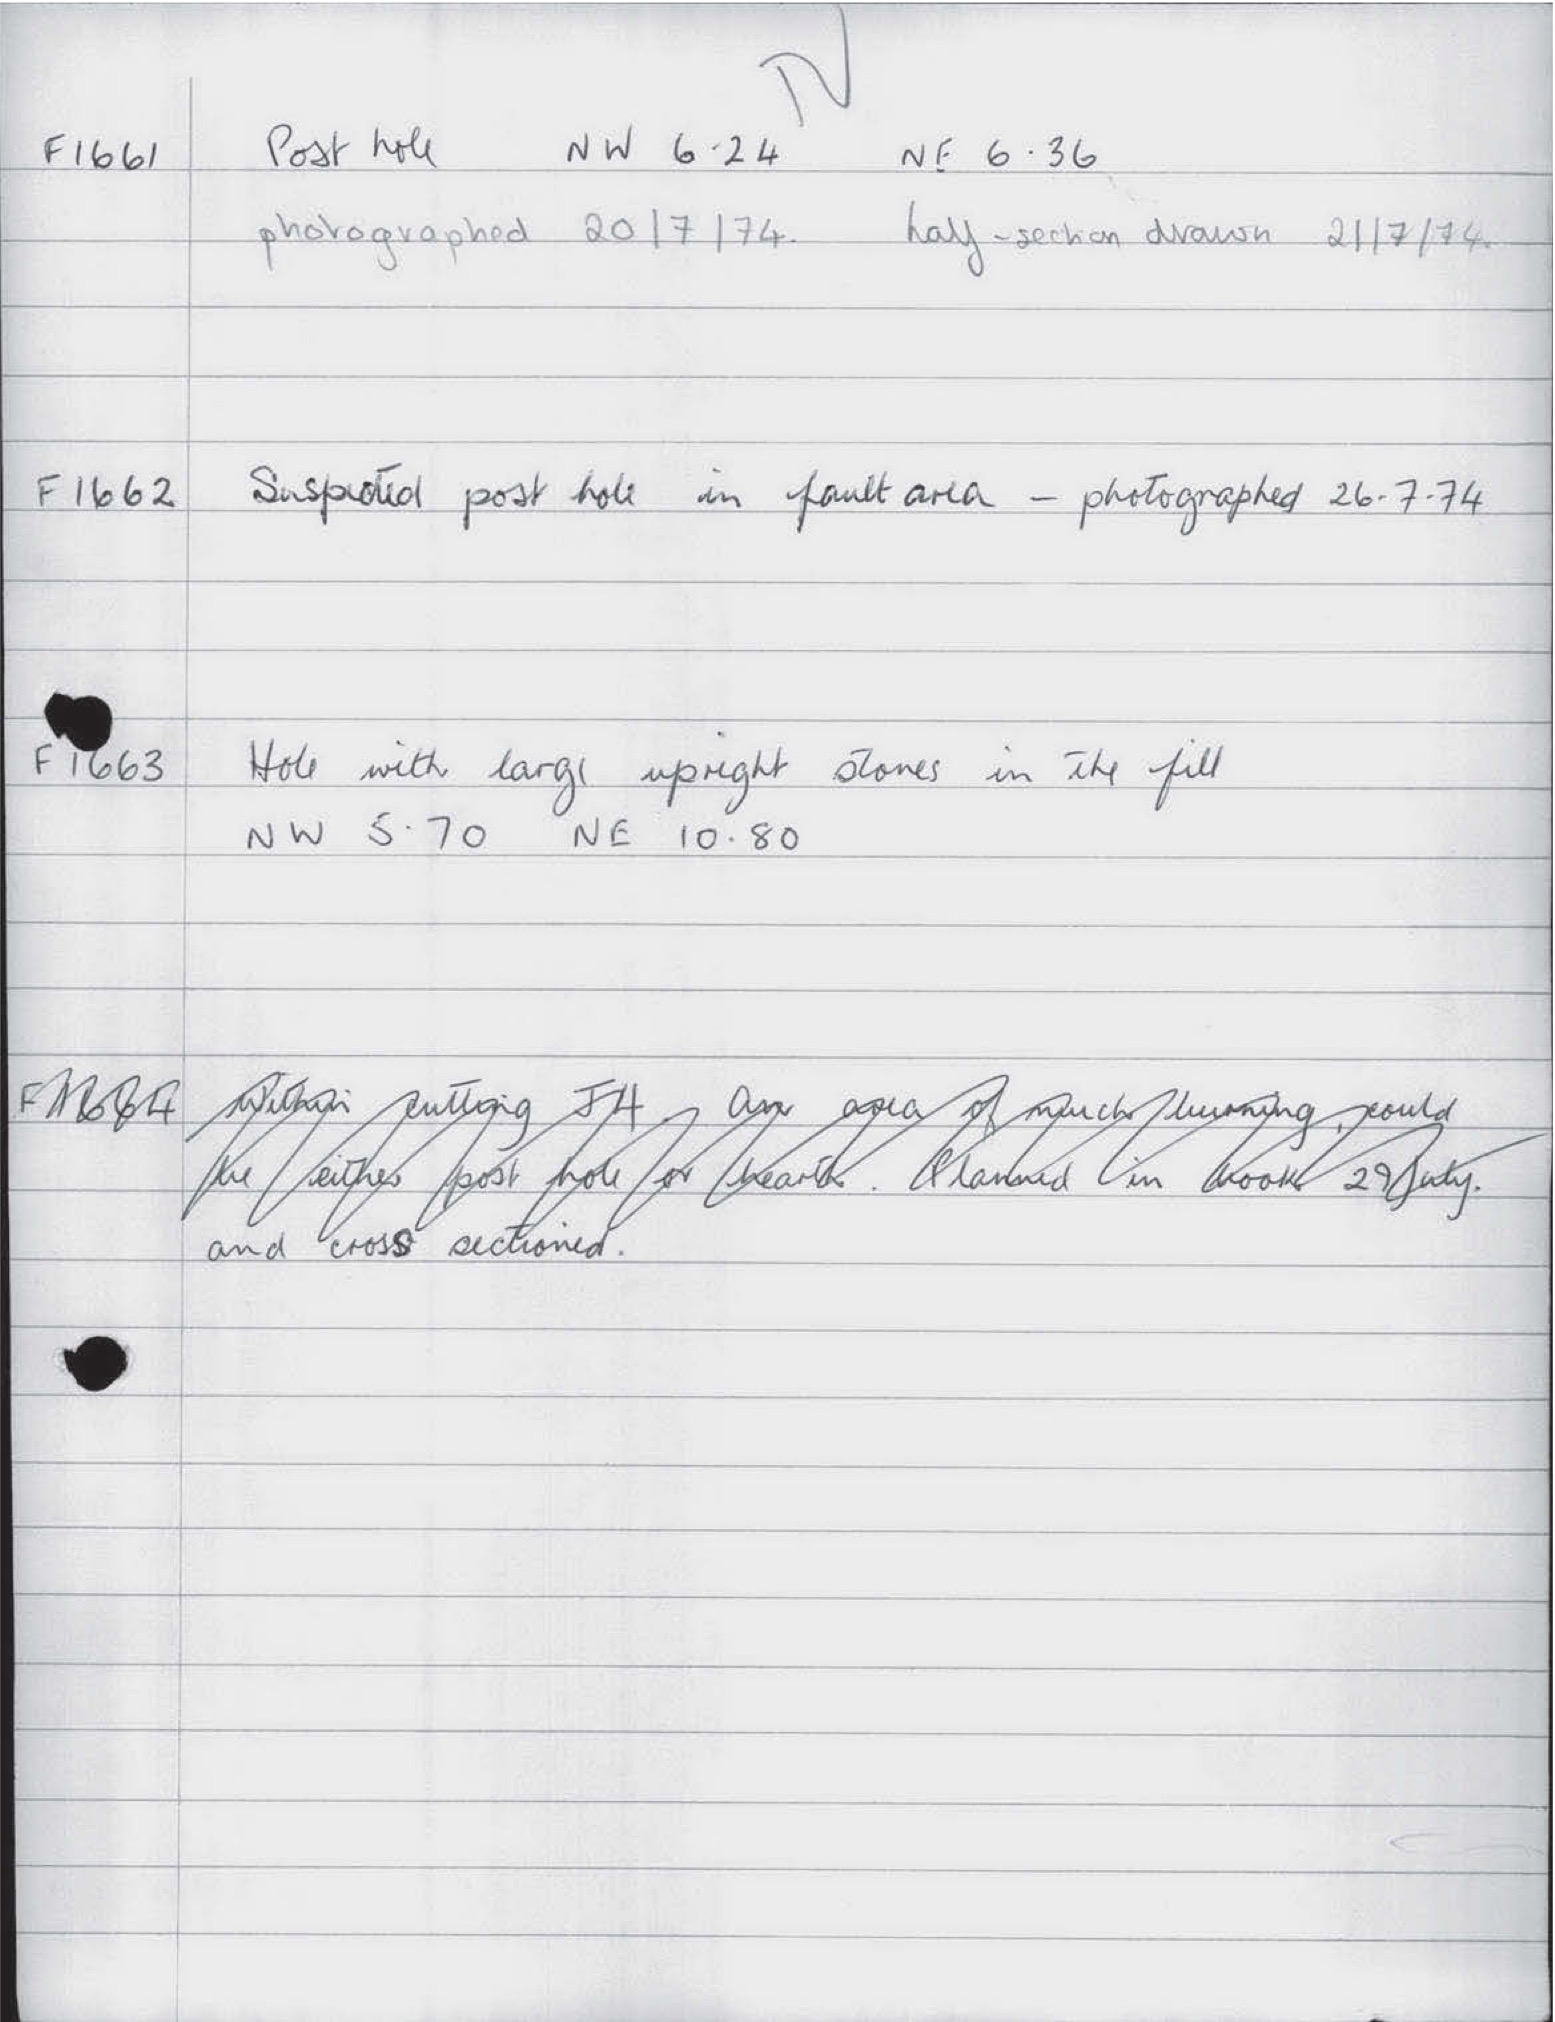 N
F1661 Post hole NW 6·24 NE 6·36
photographed 20/7/74. half-section drawn 21/7/74.
F1662 Suspected post hole in fault area – photographed 26·7·74
F1663 Hole with large upright stones in the fill
NW 5·70 NE 10·80
F1664 Within cutting J4. An area of much burning, could
be either post hole or hearth. Planned in book 29 July.
and cross sectioned.